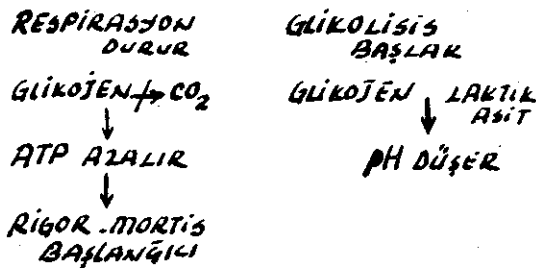 RESPIRASYON
DURUR
GLİKOJEN ↛ CO2
↓
ATP AZALIR
↓
RİGOR-MORTİS
BAŞLANĞICI
GLİKOLİSİS
BAŞLAR
GLİKOJEN ↓ LAKTİK
ASİT
pH DÜŞER